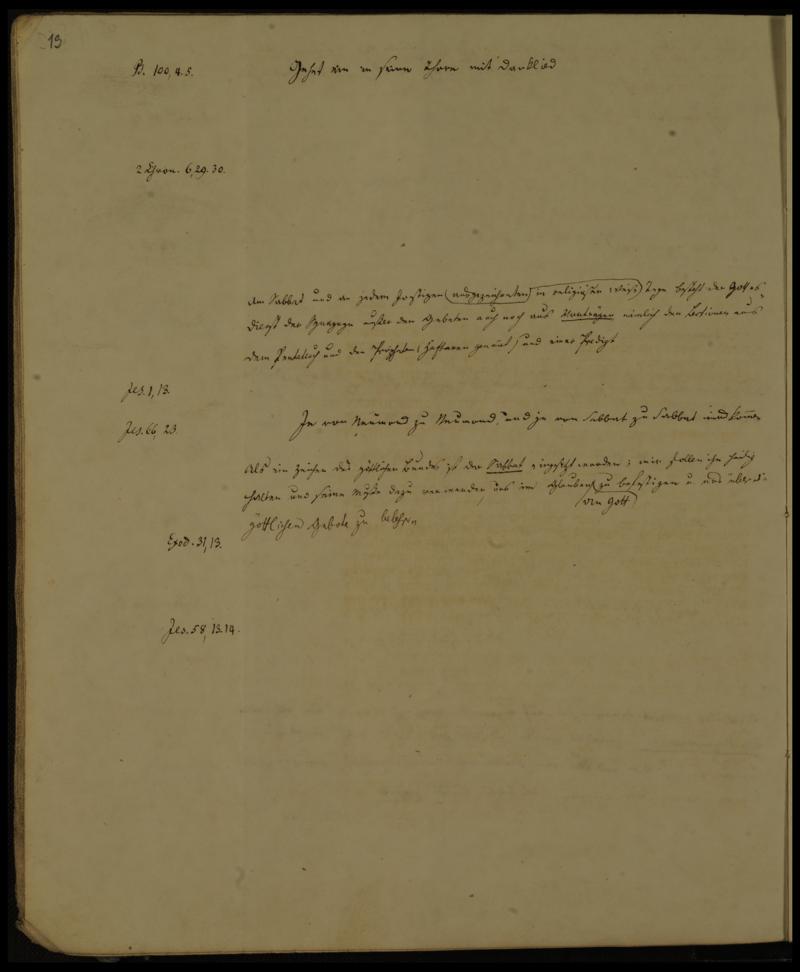 19
Ps. 100, 4. 5. Gehet ein in seine Thore mit Danklied
2 Chron. 6, 29. 30.
Am Sabbat und an jedem sonstigen (ausgezeichneten) in religiöser Weise Tage besteht der Gottes-
dienst der Synagoge außer den Gebeten auch noch aus Vorträgen nämlich den Lectionen aus
dem Pentateuch und den Propheten (Haftaren genannt) und einer Predigt
Jes. 1, 13.
Jes. 66, 23. Je von Neumond zu Neumond, und je von Sabbat zu Sabbat wird kommen
Als ein Zeichen des göttlichen Bundes ist der Sabbat eingesetzt worden; wir sollen ihn heilig
halten und seine Muße dazu verwenden, uns im Glauben zu befestigen u. uns über die
von Gott
göttlichen Gebote zu belehren
Exod. 31, 13.
Jes. 58, 13. 14.